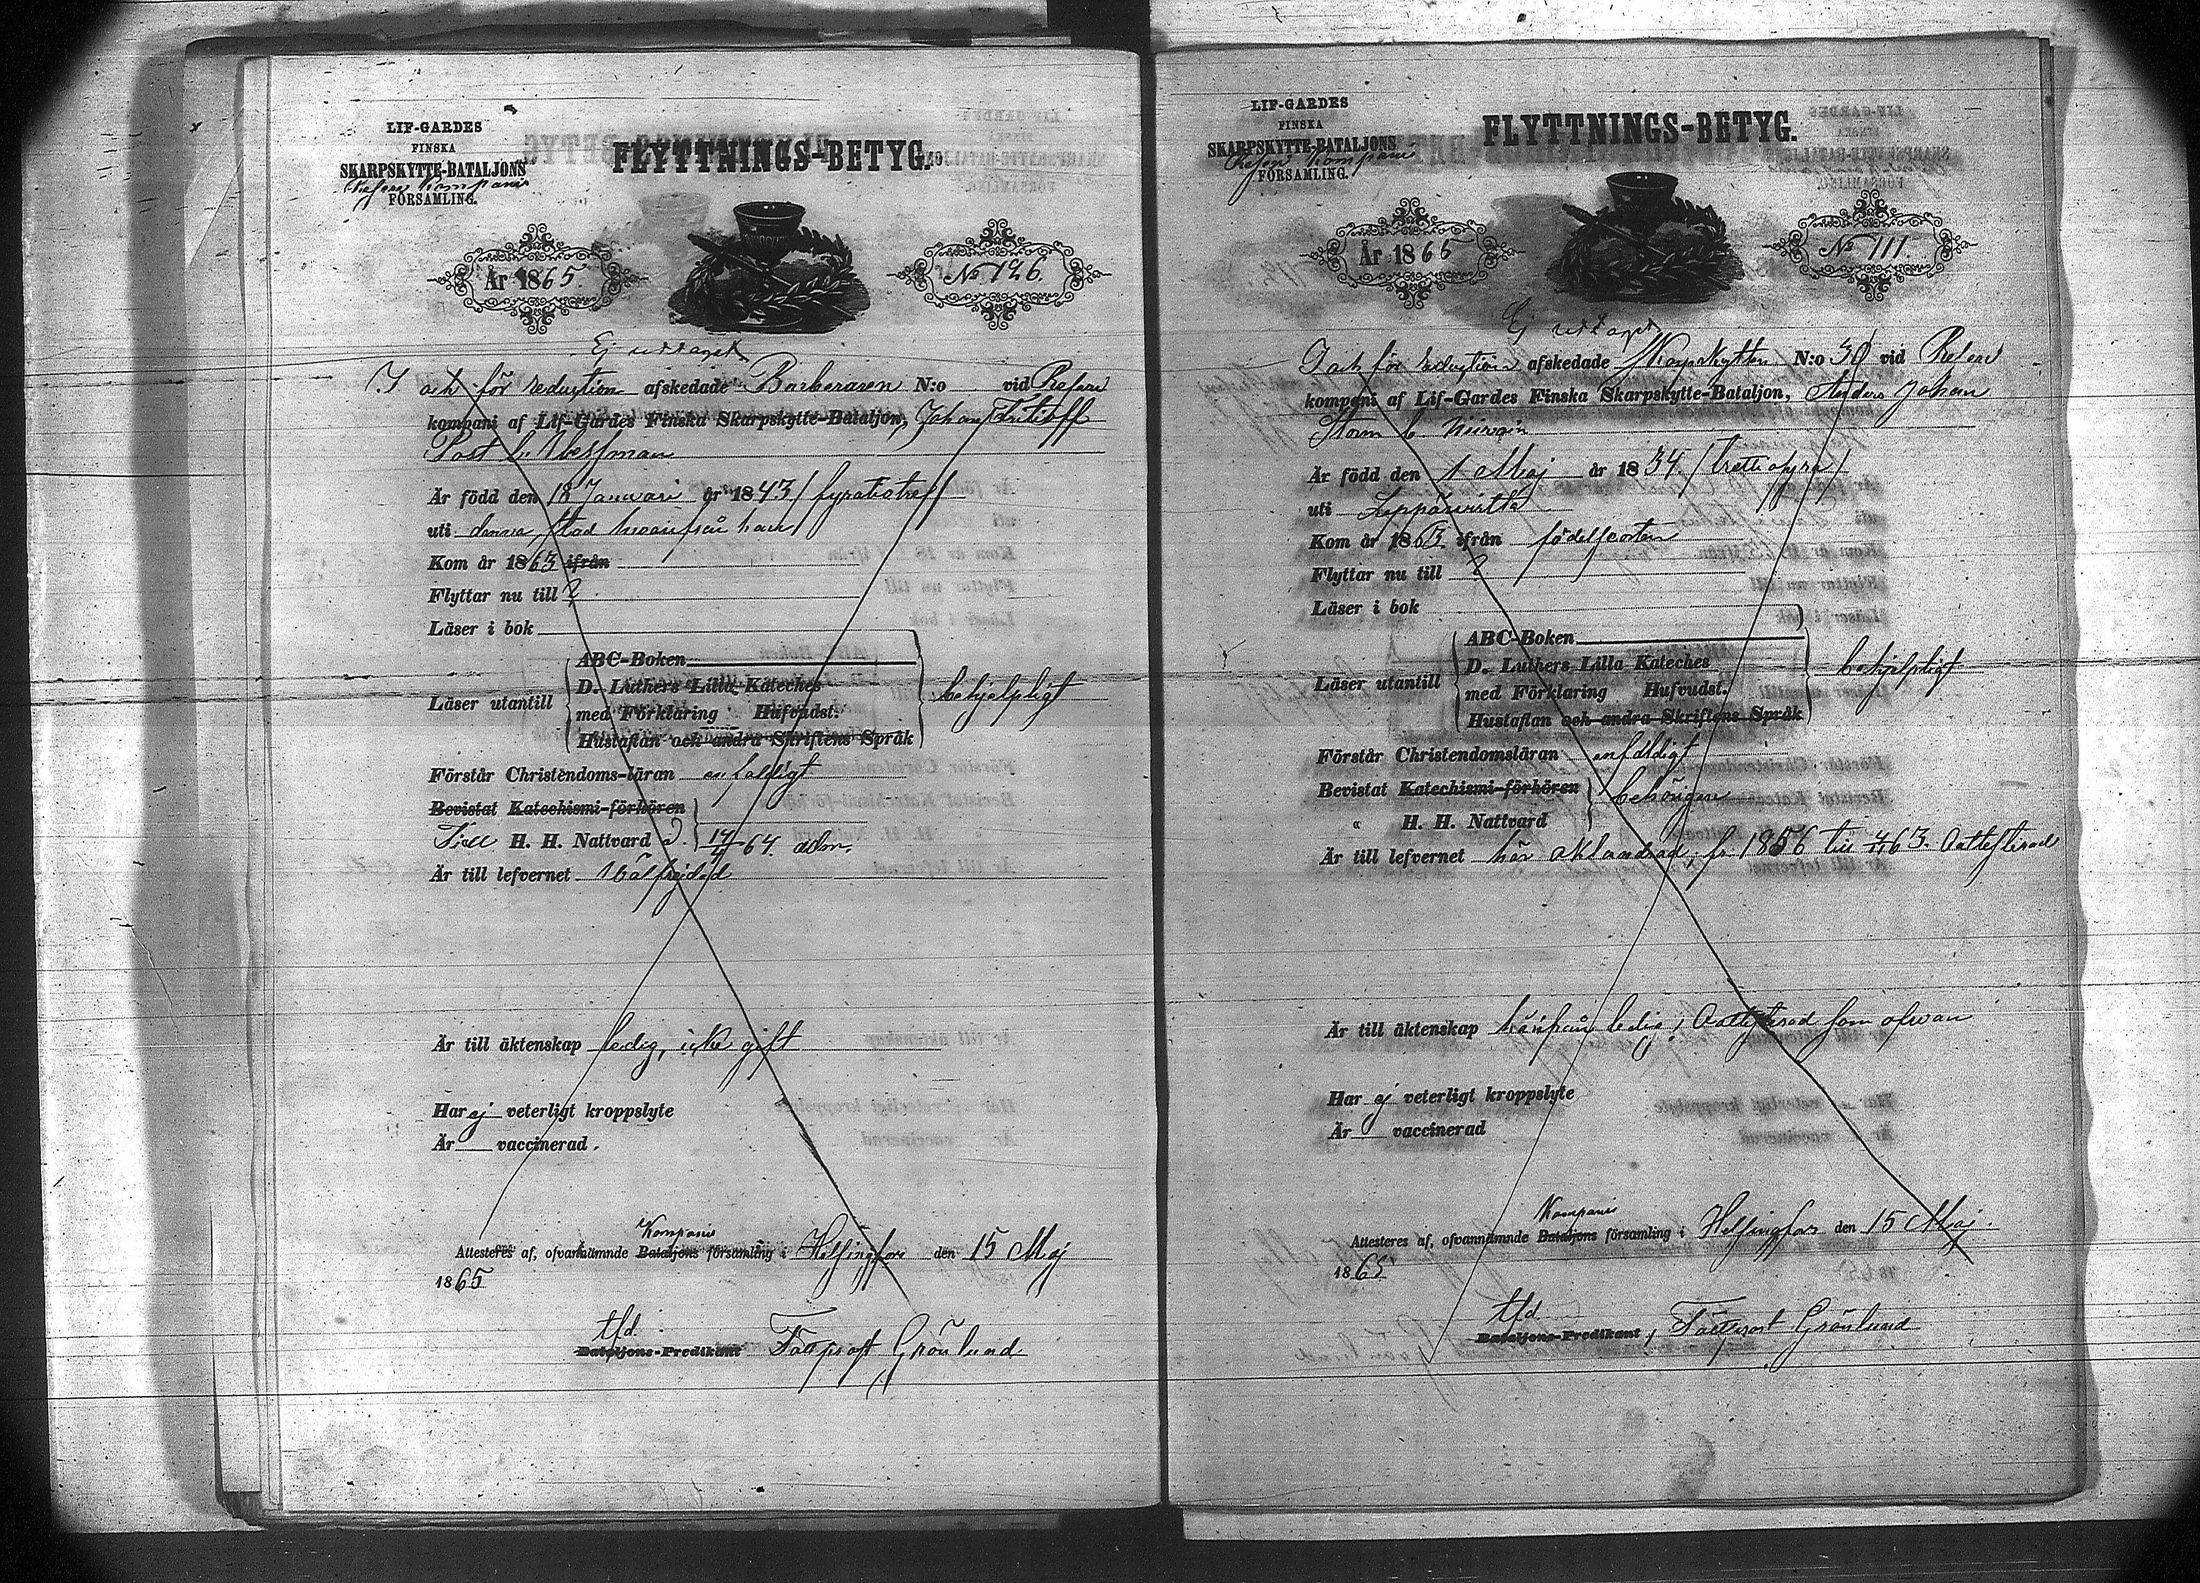 LIF-GARDES
FINSKA
SKARPSKYTTE-BATALJONS
Kompanis
FÖRSAMLING.
FLYTTNINGS-BETYG.
År 1865.
No 126.
Ej uttaget
för reduction afskedade Barberaren N:o vid
kompani af Lif-Gardes Finska Skarpskytte-Bataljon, Johan
Post
Är född den 18 Januari år 1843 / fyratiotre /
uti denna stad hvarifrån han
Kom år 1863 ifrån
Flyttar nu till ?
Läser i bok
Läser utantill
ABC-Boken
D. Luthers Lilla Kateches
med Förklaring Hufvudst.
Hustaflan och andra Skriftens Språk
behjelpligt
Förstår Christendoms-läran enfaldigt
Bevistat Katechismi-förhören
H. H. Nattvard 64
Är till lefvernet Välfrejdad
Är till äktenskap ledig, icke gift
Har ej veterligt kroppslyte
Är vaccinerad.
Kompanis
Attesteres af, ofvannämnde Bataljons församling i Helsingfors den 15 Maj
1865
tfd.
Bataljons-Predikant Fältprost Grönlund
LIF-GARDES
FINSKA
SKARPSKYTTE-BATALJONS
Kompanis
FÖRSAMLING.
FLYTTNINGS-BETYG.
År 1865
No 111.
Ej uttaget
för reduction afskedade Skarpskytten N:o 30 vid
kompani af Lif-Gardes Finska Skarpskytte-Bataljon, Anders Johan
Storm
Är född den 1 Maj år 1834 / trettiofyra /
uti Leppävirta
Kom år 1863. ifrån födelseorten
Flyttar nu till ?
Läser i bok
Läser utantill
ABC-Boken
D. Luthers Lilla Kateches
med Förklaring Hufvudst.
Hustaflan och andra Skriftens Språk
behjelpligt
Förstår Christendomsläran enfaldigt
Bevistat Katechismi-förhören
« H. H. Nattvard
behörigen
Är till lefvernet här oklandrad, fr. 1856 till 63. Attesterad
Är till äktenskap härifrån ledig, Attesterad som ofvan
Har ej veterligt kroppslyte
Är vaccinerad
Kompanis
Attesteres af, ofvannämnde Bataljons församling i Helsingfors den 15 Maj.
1865
tfd.
Bataljons-Predikant, Fältprost Grönlund